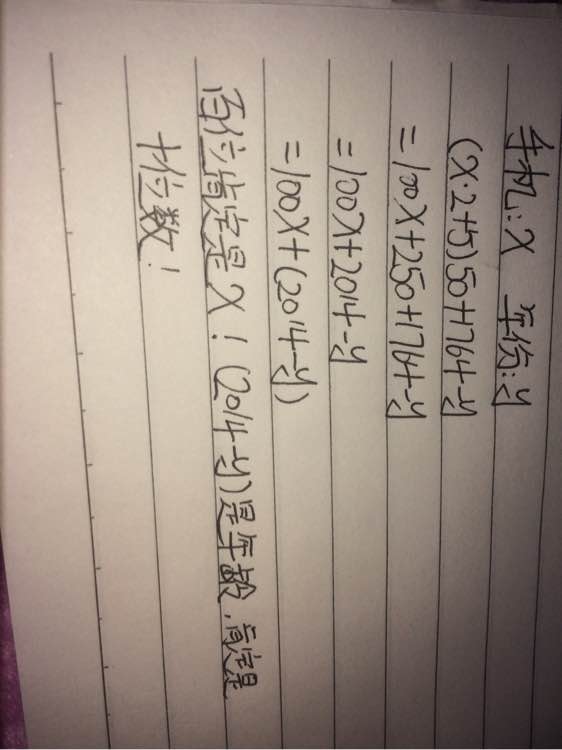 手机:X 年份:y
(X·2+5)50+1764-y
=100X+250+1764-y
=100X+2014-y
=100X+(2014-y)
百位肯定是X!(2014-y)是年龄,肯定是
十位数!